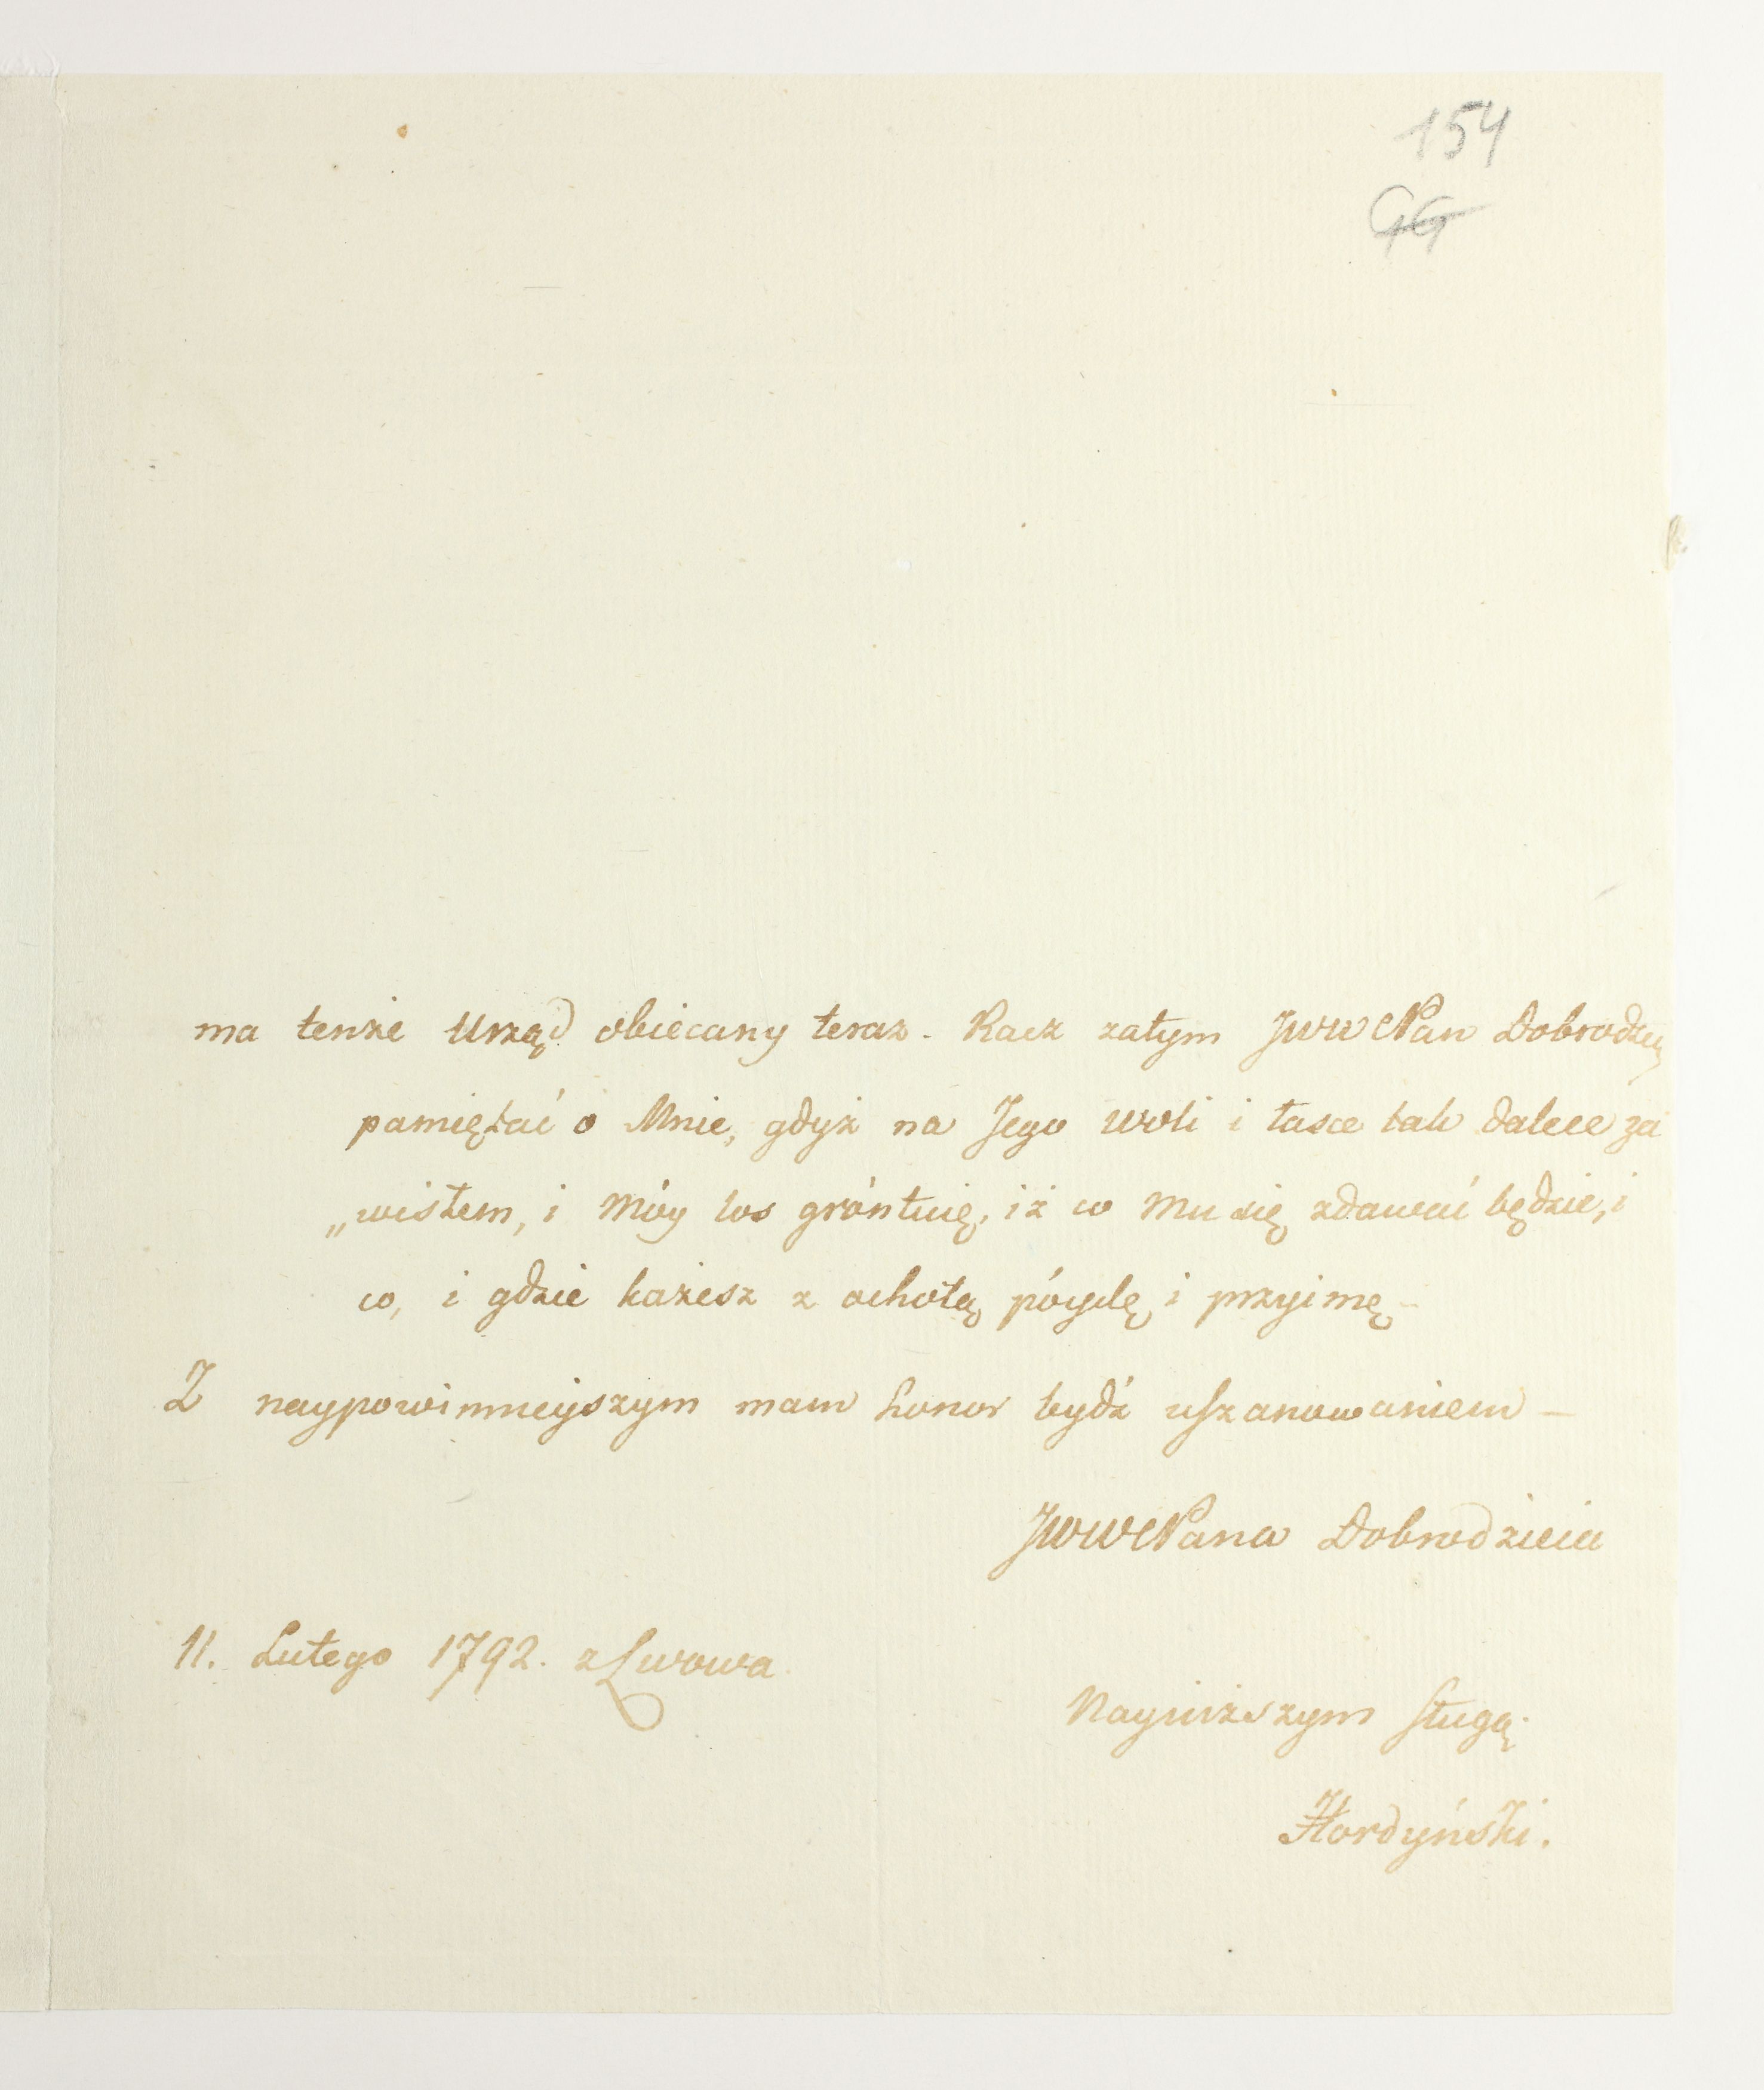 154
ma tenże Urząd obiecany teraz. Racz zatym JWW Pan Dobrodziey
pamiętać o Mnie, gdyż na Jego woli i łasce tak dalece za
„wisłem, i Móy los gróntuię, iż co Mu się zdawać będzie, i
co, i gdzie każesz z ochotą póydę i przyimę –
Z naypowinnieyszym mam honor bydź uszanowaniem –
JWW Pana Dobrodzieia
11. Lutego 1792. z Lwowa
Nayniższym sługą
Hordyński.